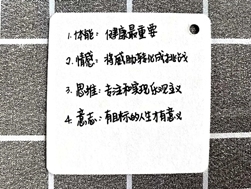 1.体能：健康最重要
2.情感：将威胁转化成挑战
3.思维：专注和实现乐观主义
4.意志：有目标的人生才有意义